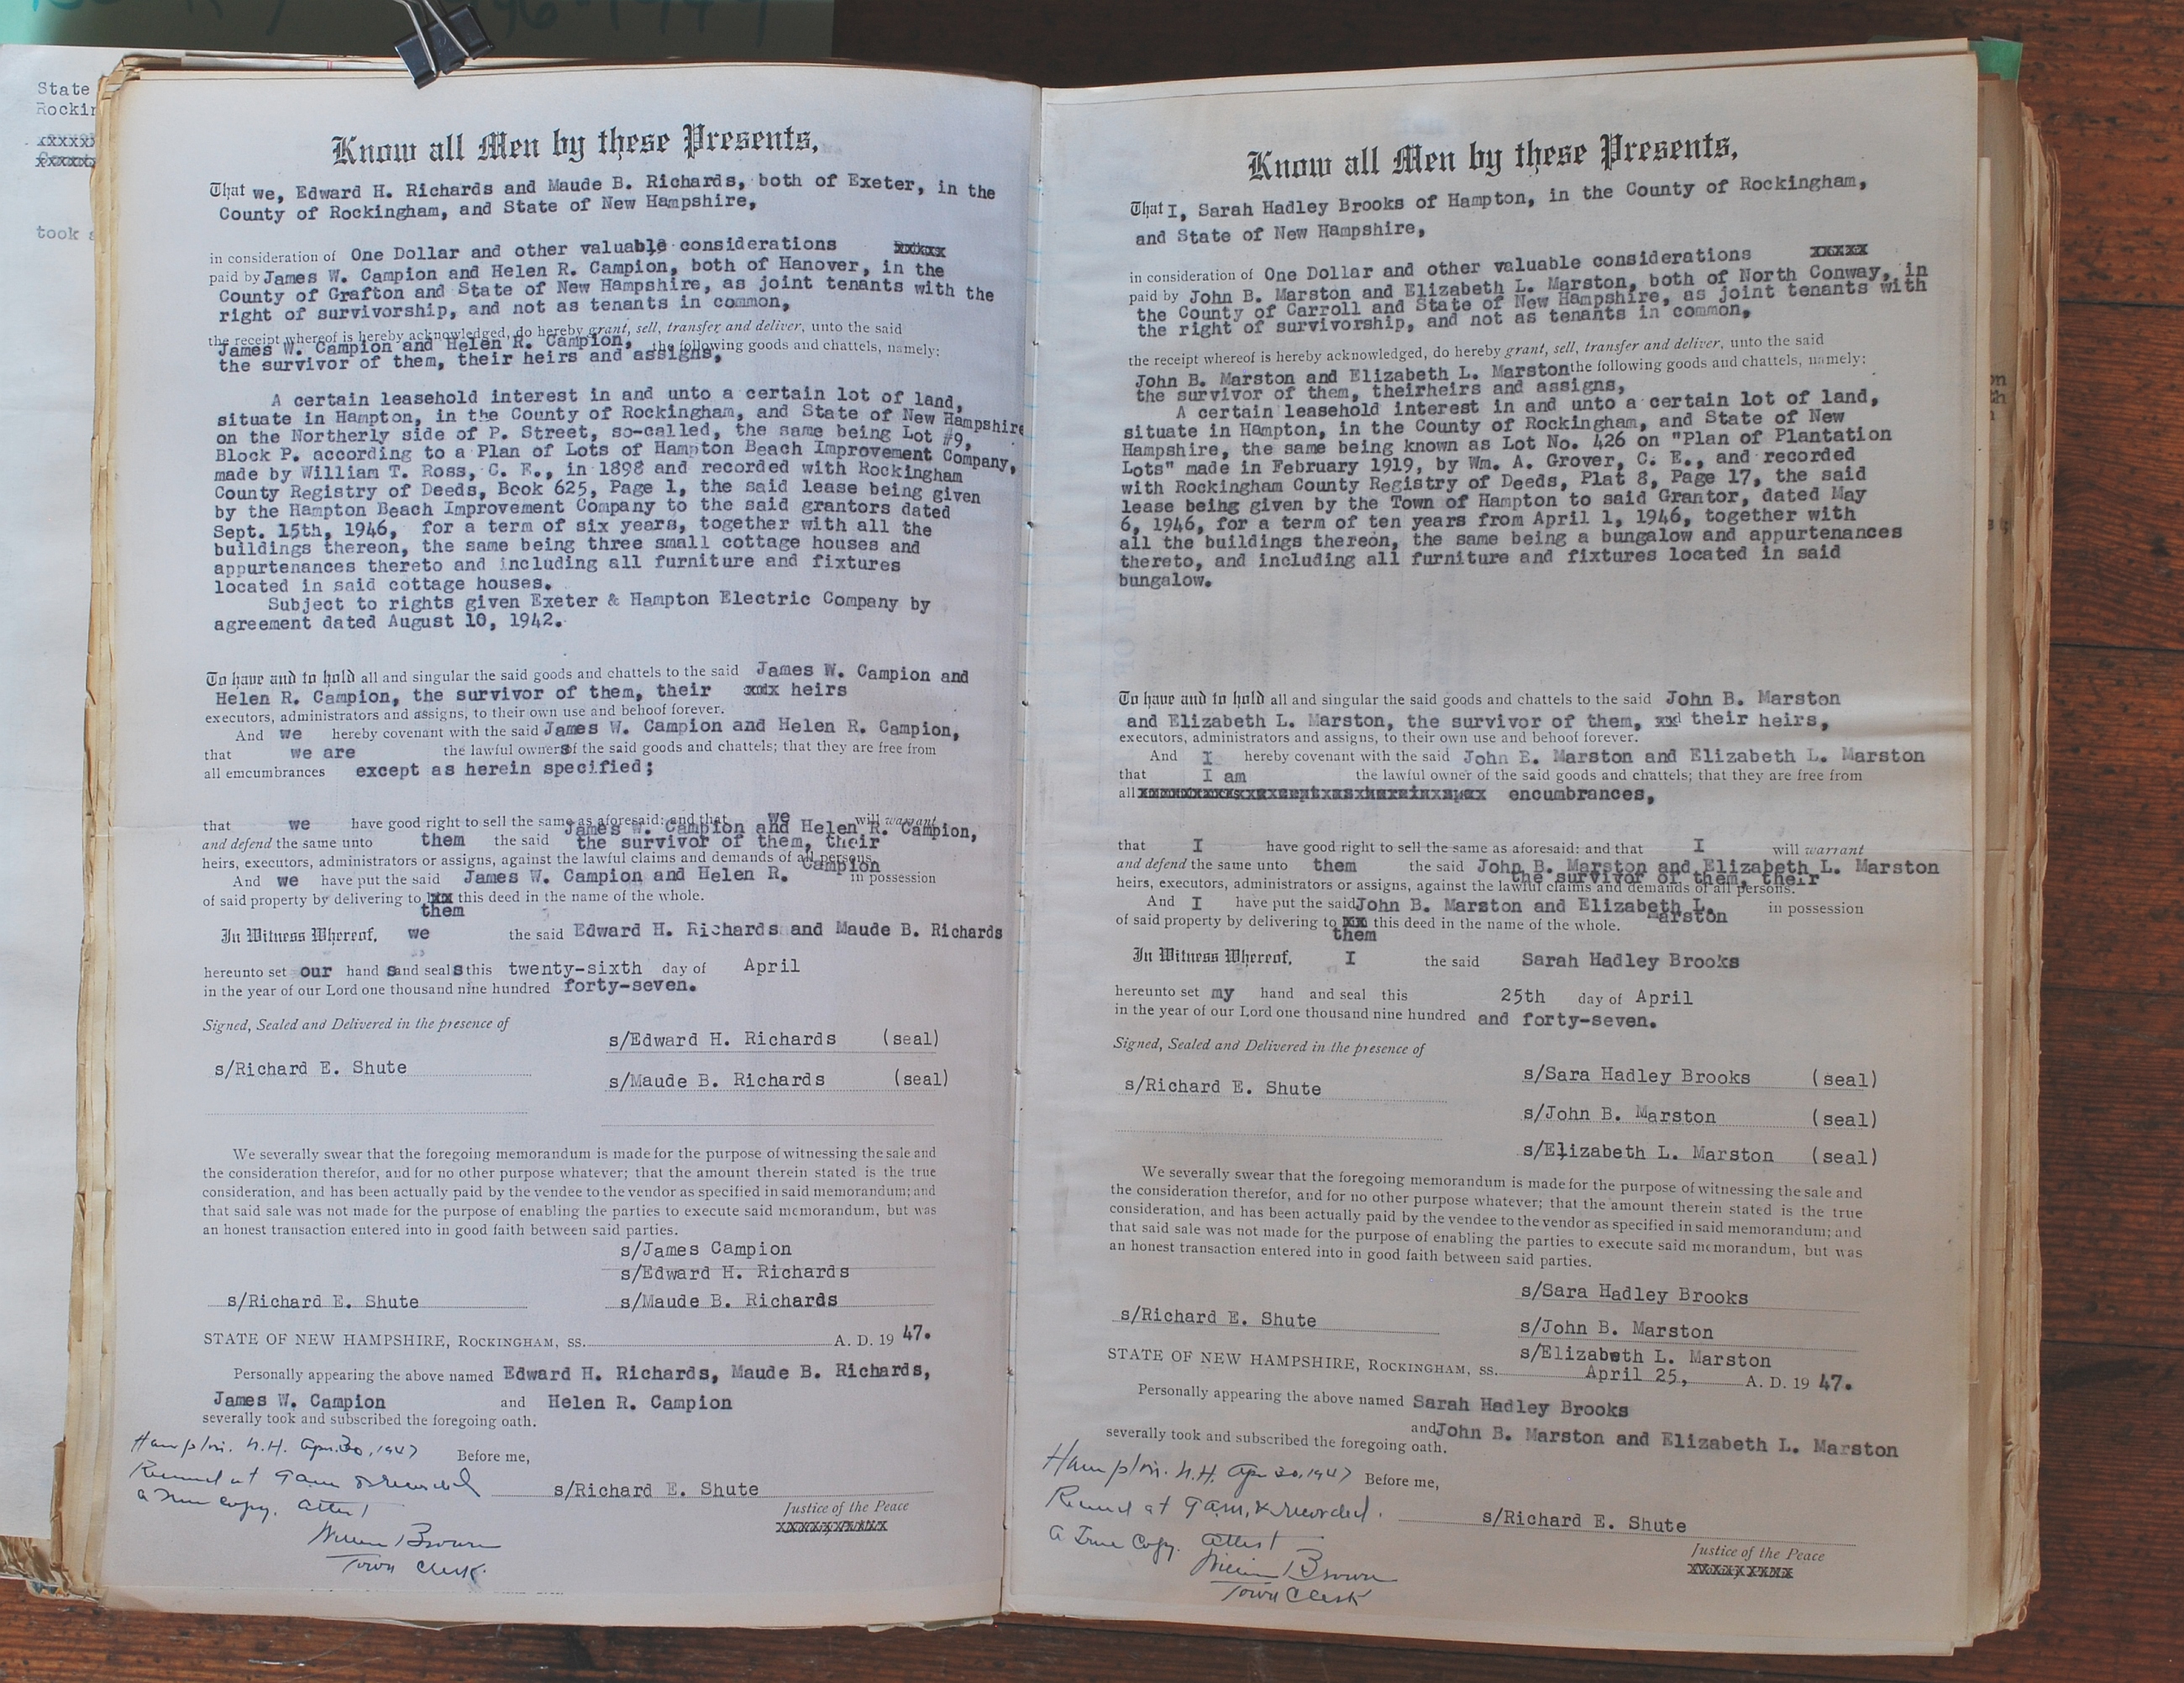 State
Rockin
xxxxx
xxxxxx
took a
Know all Men by these Presents,
That we, Edward H. Richards and Maude B. Richards, both of Exeter, in the
County of Rockingham, and State of New Hampshire,
in consideration of One Dollar and other valuable considerations xxxxx
paid by James W. Campion and Helen R. Campion, both of Hanover, in the
County of Grafton and State of New Hampshire, as joint tenants with the
right of survivorship, and not as tenants in common,
the receipt whereof is hereby acknowledged, do hereby grant, sell, transfer and deliver, unto the said
James W. Campion and Helen R. Campion, the following goods and chattels, namely:
the survivor of them, their heirs and assigns,
A certain leasehold interest in and unto a certain lot of land,
situate in Hampton, in the County of Rockingham, and State of New Hampshire
on the Northerly side of P. Street, so-called, the same being Lot #9,
Block P. according to a Plan of Lots of Hampton Beach Improvement Company,
made by William T. Ross, C. E., in 1898 and recorded with Rockingham
County Registry of Deeds, Book 625, Page 1, the said lease being given
by the Hampton Beach Improvement Company to the said grantors dated
Sept. 15th, 1946, for a term of six years, together with all the
buildings thereon, the same being three small cottage houses and
appurtenances thereto and including all furniture and fixtures
located in said cottage houses.
Subject to rights given Exeter & Hampton Electric Company by
agreement dated August 10, 1942.
To have and to hold all and singular the said goods and chattels to the said James W. Campion and
Helen R. Campion, the survivor of them, their xxix heirs
executors, administrators and assigns, to their own use and behoof forever.
And we hereby covenant with the said James W. Campion and Helen R. Campion,
that we are the lawful owners of the said goods and chattels; that they are free from
all emcumbrances except as herein specified;
that we have good right to sell the same as aforesaid: and that we will warrant
James W. Campion and Helen R. Campion,
and defend the same unto them the said the survivor of them, their
heirs, executors, administrators or assigns, against the lawful claims and demands of all persons.
And we have put the said James W. Campion and Helen R. Campion in possession
of said property by delivering to xxx this deed in the name of the whole.
them
In Witness Whereof, we the said Edward H. Richards and Maude B. Richards
hereunto set our hand sand seal s this twenty-sixth day of April
in the year of our Lord one thousand nine hundred forty-seven.
Signed, Sealed and Delivered in the presence of
s/Edward H. Richards (seal)
s/Richard E. Shute
s/Maude B. Richards (seal)
We severally swear that the foregoing memorandum is made for the purpose of witnessing the sale and
the consideration therefor, and for no other purpose whatever; that the amount therein stated is the true
consideration, and has been actually paid by the vendee to the vendor as specified in said memorandum; and
that said sale was not made for the purpose of enabling the parties to execute said memorandum, but was
an honest transaction entered into in good faith between said parties.
s/James Campion
s/Edward H. Richards
s/Richard E. Shute s/Maude B. Richards
STATE OF NEW HAMPSHIRE, ROCKINGHAM, SS. A. D. 19 47.
Personally appearing the above named Edward H. Richards, Maude B. Richards,
James W. Campion and Helen R. Campion
severally took and subscribed the foregoing oath.
Hampton. N.H. Apr. 30, 1947 Before me,
Received at 9 am & recorded
s/Richard E. Shute
a True Copy. Attest
Justice of the Peace
xxxxxxxxxxx
William Brown
Town Clerk.
Know all Men by these Presents,
That I, Sarah Hadley Brooks of Hampton, in the County of Rockingham,
and State of New Hampshire,
in consideration of One Dollar and other valuable considerations xxxxx
paid by John B. Marston and Elizabeth L. Marston, both of North Conway, in
the County of Carroll and State of New Hampshire, as joint tenants with
the right of survivorship, and not as tenants in common,
the receipt whereof is hereby acknowledged, do hereby grant, sell, transfer and deliver, unto the said
John B. Marston and Elizabeth L. Marston the following goods and chattels, namely:
the survivor of them, theirheirs and assigns,
A certain leasehold interest in and unto a certain lot of land,
situate in Hampton, in the County of Rockingham, and State of New
Hampshire, the same being known as Lot No. 426 on "Plan of Plantation
Lots" made in February 1919, by Wm. A. Grover, C. E., and recorded
with Rockingham County Registry of Deeds, Plat 8, Page 17, the said
lease being given by the Town of Hampton to said Grantor, dated May
6, 1946, for a term of ten years from April 1, 1946, together with
all the buildings thereon, the same being a bungalow and appurtenances
thereto, and including all furniture and fixtures located in said
bungalow.
To have and to hold all and singular the said goods and chattels to the said John B. Marston
and Elizabeth L. Marston, the survivor of them, xxx their heirs,
executors, administrators and assigns, to their own use and behoof forever.
And I hereby covenant with the said John B. Marston and Elizabeth L. Marston
that I am the lawful owner of the said goods and chattels; that they are free from
all encumbrances,
that I have good right to sell the same as aforesaid: and that I will warrant
and defend the same unto them the said John B. Marston and Elizabeth L. Marston
the survivor of them, their
heirs, executors, administrators or assigns, against the lawful claims and demands of all persons.
And I have put the said John B. Marston and Elizabeth L. Marston in possession
of said property by delivering to xx this deed in the name of the whole.
them
In Witness Whereof, I the said Sarah Hadley Brooks
hereunto set my hand and seal this 25th day of April
in the year of our Lord one thousand nine hundred and forty-seven.
Signed, Sealed and Delivered in the presence of
s/Sara Hadley Brooks (seal)
s/Richard E. Shute
s/John B. Marston (seal)
s/Elizabeth L. Marston (seal)
We severally swear that the foregoing memorandum is made for the purpose of witnessing the sale and
the consideration therefor, and for no other purpose whatever; that the amount therein stated is the true
consideration, and has been actually paid by the vendee to the vendor as specified in said memorandum; and
that said sale was not made for the purpose of enabling the parties to execute said memorandum, but was
an honest transaction entered into in good faith between said parties.
s/Sara Hadley Brooks
s/Richard E. Shute
s/John B. Marston
s/Elizabeth L. Marston
STATE OF NEW HAMPSHIRE, ROCKINGHAM, SS. April 25, A. D. 19 47.
Personally appearing the above named Sarah Hadley Brooks
and John B. Marston and Elizabeth L. Marston
severally took and subscribed the foregoing oath.
Hampton. N.H. Apr 30, 1947 Before me,
Received at 9 am, & recorded.
s/Richard E. Shute
a True Copy. Attest
Justice of the Peace
xxxxxxxxxx
William Brown
Town Clerk